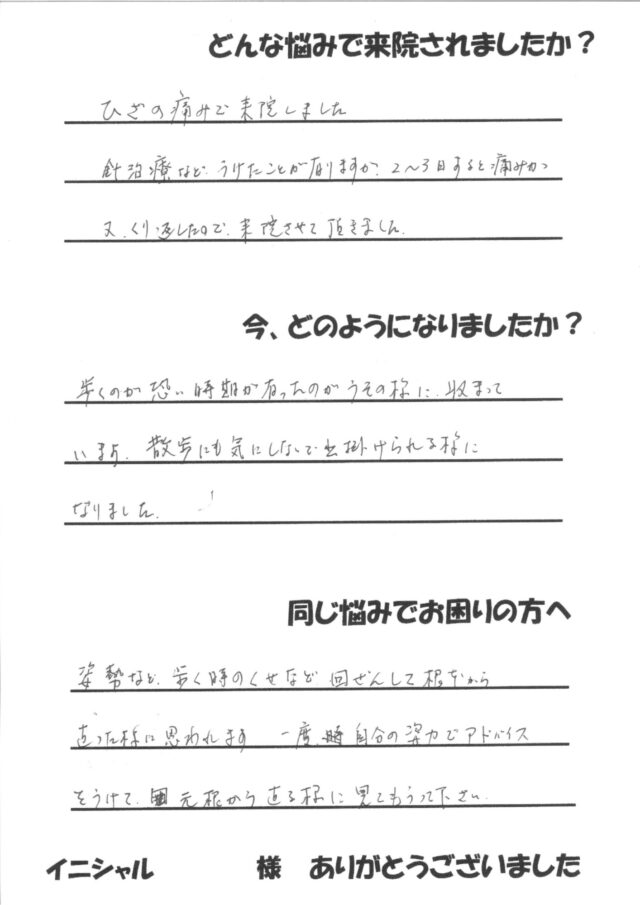 どんな悩みで来院されましたか？
ひざの痛みで来院しました
針治療など、うけたことが有りますが、2～3日すると痛みが
又、くり返したので、来院させて頂きました。
今、どのようになりましたか？
歩くのが恐い時期が有ったのがうその様に、収まって
います。散歩にも気にしないで出掛けられる様に
なりました。
同じ悩みでお困りの方へ
姿勢など、歩く時のくせなど 回ぜんして根本から
直った様に思われます 一度、自分の姿でアドバイス
をうけて、元根から直る様に見てもらって下さい。
イニシャル 様 ありがとうございました